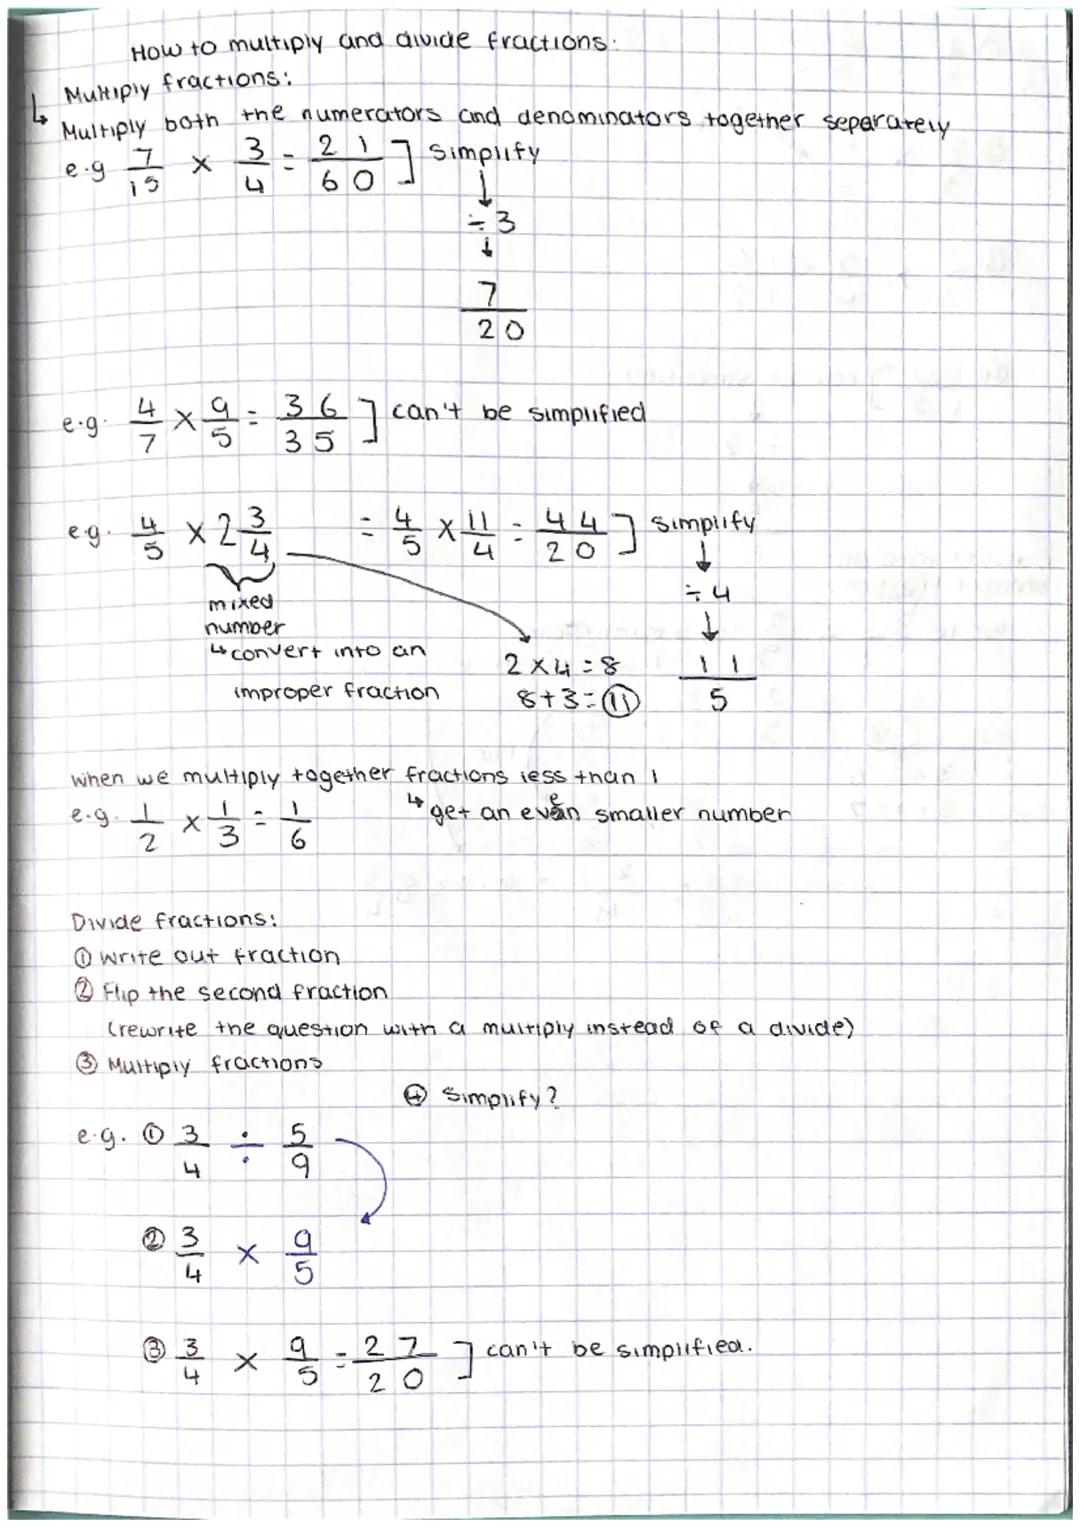 How to multiply and divide fractions:
Multiply fractions:
↳ Multiply both the numerators and denominators together separately
e.g 7/15 × 3/4 = 21/60 ] simplify
↓
÷3
↓
7/20
e.g. 4/7 × 9/5 = 36/35 ] can't be simplified
e.g. 4/5 × 2 3/4 = 4/5 × 11/4 = 44/20 ] simplify
↓
÷4
↓
11/5
mixed
number
↳ convert into an
improper fraction
2×4=8
8+3=⑪
when we multiply together fractions less than 1
↳ get an even smaller number
e.g. 1/2 × 1/3 = 1/6
Divide fractions:
① write out fraction
② Flip the second fraction
(rewrite the question with a multiply instead of a divide)
③ Multiply fractions
④ Simplify?
e.g. ① 3/4 ÷ 5/9
② 3/4 × 9/5
③ 3/4 × 9/5 = 27/20 ] can't be simplified.